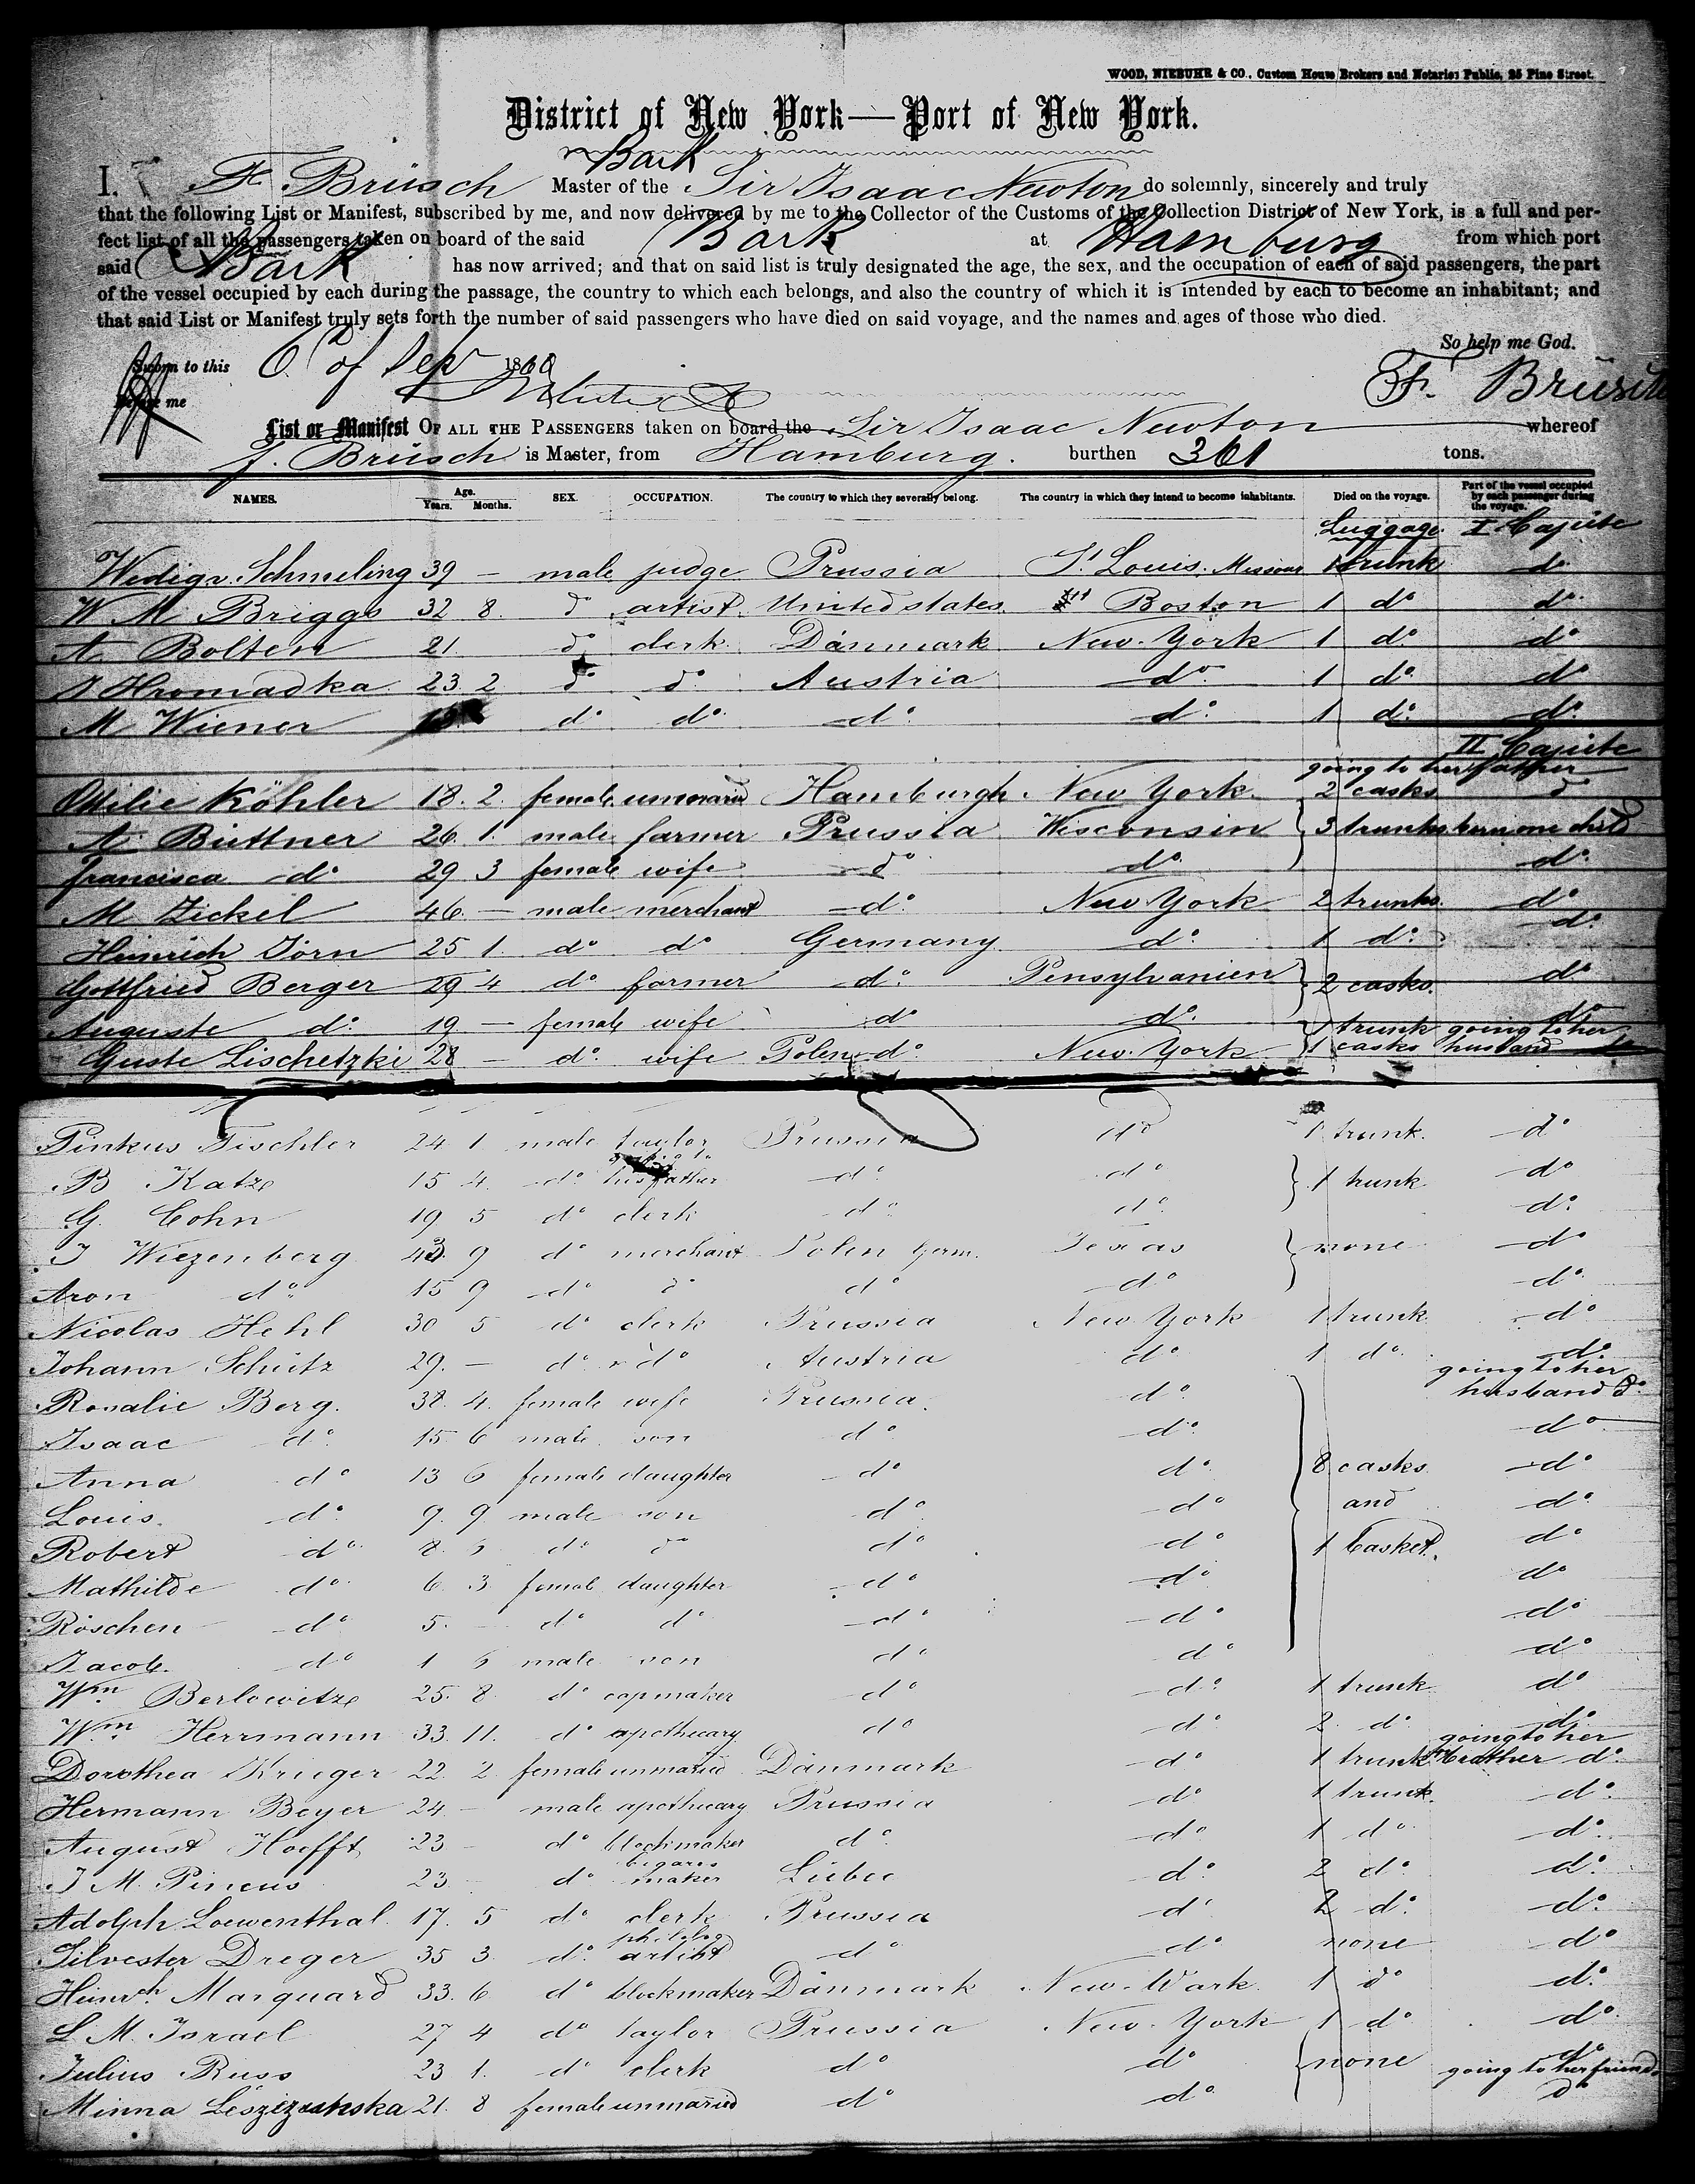 WOOD, NIEBUHR & CO., Custom House Brokers and Notaries Public, 25 Pine Street.
District of New York — Port of New York.
Bark
I, F. Brüsch Master of the Sir Isaac Newton do solemnly, sincerely and truly
that the following List or Manifest, subscribed by me, and now delivered by me to the Collector of the Customs of the Collection District of New York, is a full and per-
fect list of all the passengers taken on board of the said Bark at Hamburg from which port
said Bark has now arrived; and that on said list is truly designated the age, the sex, and the occupation of each of said passengers, the part
of the vessel occupied by each during the passage, the country to which each belongs, and also the country of which it is intended by each to become an inhabitant; and
that said List or Manifest truly sets forth the number of said passengers who have died on said voyage, and the names and ages of those who died.
So help me God.
Sworn to this 6 of Sep 1860 F. Brüsch
Before me
List or Manifest OF ALL THE PASSENGERS taken on board the Sir Isaac Newton whereof
F. Brüsch is Master, from Hamburg. burthen 361 tons.
NAMES. Age. Years. Months. SEX. OCCUPATION. The country to which they severally belong. The country in which they intend to become inhabitants. Died on the voyage. Part of the vessel occupied by each passenger during the voyage.
Luggage I Cajüte
Wedig v. Schmeling 39 — male judge Prussia St. Louis. Missouri 1 trunk do
W M Briggs 32 8. do artist. United states. Boston 1 do do
A. Bolten 21 do clerk. Dänmark New-York 1 do do
J Hromadka 23. 2 do do Austria do 1 do do
M Wiener do do do do 1 do do
II Cajüte
going to her father
Ottilie Köhler 18. 2. female unmaried Hamburgh. New York. 2 casks do
A. Büttner 26. 1. male farmer Prussia Wisconsin 3 trunks born one child
Francisca do 29 3 female wife do do do
M Zickel 46. — male merchant do New York 2 trunks. do
Heinrich Törn 25 1. do do Germany do 1 do do
Gottfried Berger 29 4 do farmer do Pensylvanien 2 casks. do
Auguste do 19 — female wife do do do
Guste Lischetzki 28 — do wife Polen do New-York 1 trunk going to her
1 casks husband do
Pinkus Tischler 24 1 male taylor Prussia do 1 trunk. do
B Katz 15 4. do his father do do 1 trunk do
G. Cohn 19 5 do clerk do do do
J Wiezenberg 43. 9 do merchant Polen Germ. Texas none do
Aron do 15 9 do do do do do
Nicolas Hehl 30 5 do clerk Prussia New York 1 trunk do
Johann Schütz 29. — do do Austria do 1 do do
going to her
Rosalie Berg. 38. 4. female wife Prussia. do husband do
Isaac do 15 6 male son do do do
Anna do 13 6 female daughter do do 8 casks do
Louis. do 9. 9 male son do do and do
Robert do 8. 5 do do do do 1 Casket. do
Mathilde do 6. 3 female daughter do do do
Röschen do 5. — do do do do do
Jacob. do 1 6 male son do do do
Wm Berlowitz 25. 8. do capmaker do do 1 trunk do
Wm Herrmann 33. 11. do apothecary do do 2. do do
going to her
Dorothea Krüger 22. 2. female unmaried Dänmark do 1 trunk brother do
Hermann Beyer 24 — male apothecary Prussia do 1 trunk. do
August Hoefft, 23 — do blockmaker do do 1 do do
J M. Pincus 23. — do Cigars maker Lübec do 2 do do
Adolph Loewenthal 17. 5 do clerk Prussia do 2 do do
Silvester Dreger 35 3. do artist do do none do
Heinrch Marquard 33. 6. do blockmaker Dänmark New-Wark. 1 do do
L M. Israel 27 4 do taylor Prussia New-York 1 do do
Julius Russ 23 1. do clerk do do none do
going to her friend
Minna 21. 8 female unmaried do do do